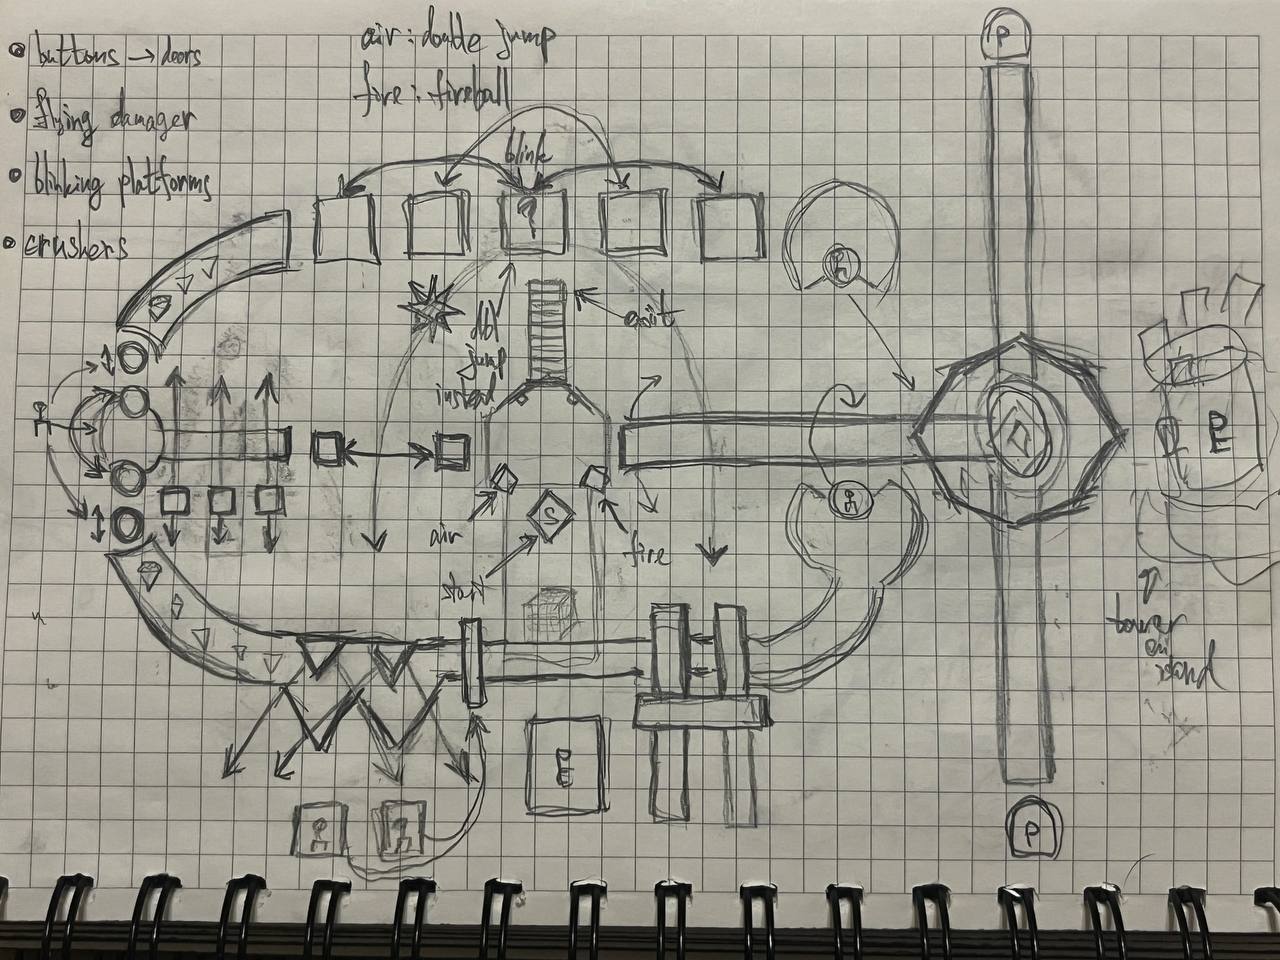 buttons → doors
flying damager
blinking platforms
crushers
air: double jump
fire: fireball
blink
dbl
jump
instead
exit
air
start
S
fire
P
P
tower
on
island